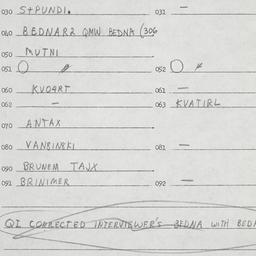 030 S+PUNDI. 031 —
040 BEDNARZ QMW BEDNA (306
050 MUTNI
051 052
060 KVO4RT 061 —
062 — 063 KVATIRL
070 ANTAX
080 VANBINSKI 081 —
090 BRUNEM TAJX
091 BRINIMER 092 —
QI CORRECTED INTERVIEWER'S BEDNA WITH BEDN